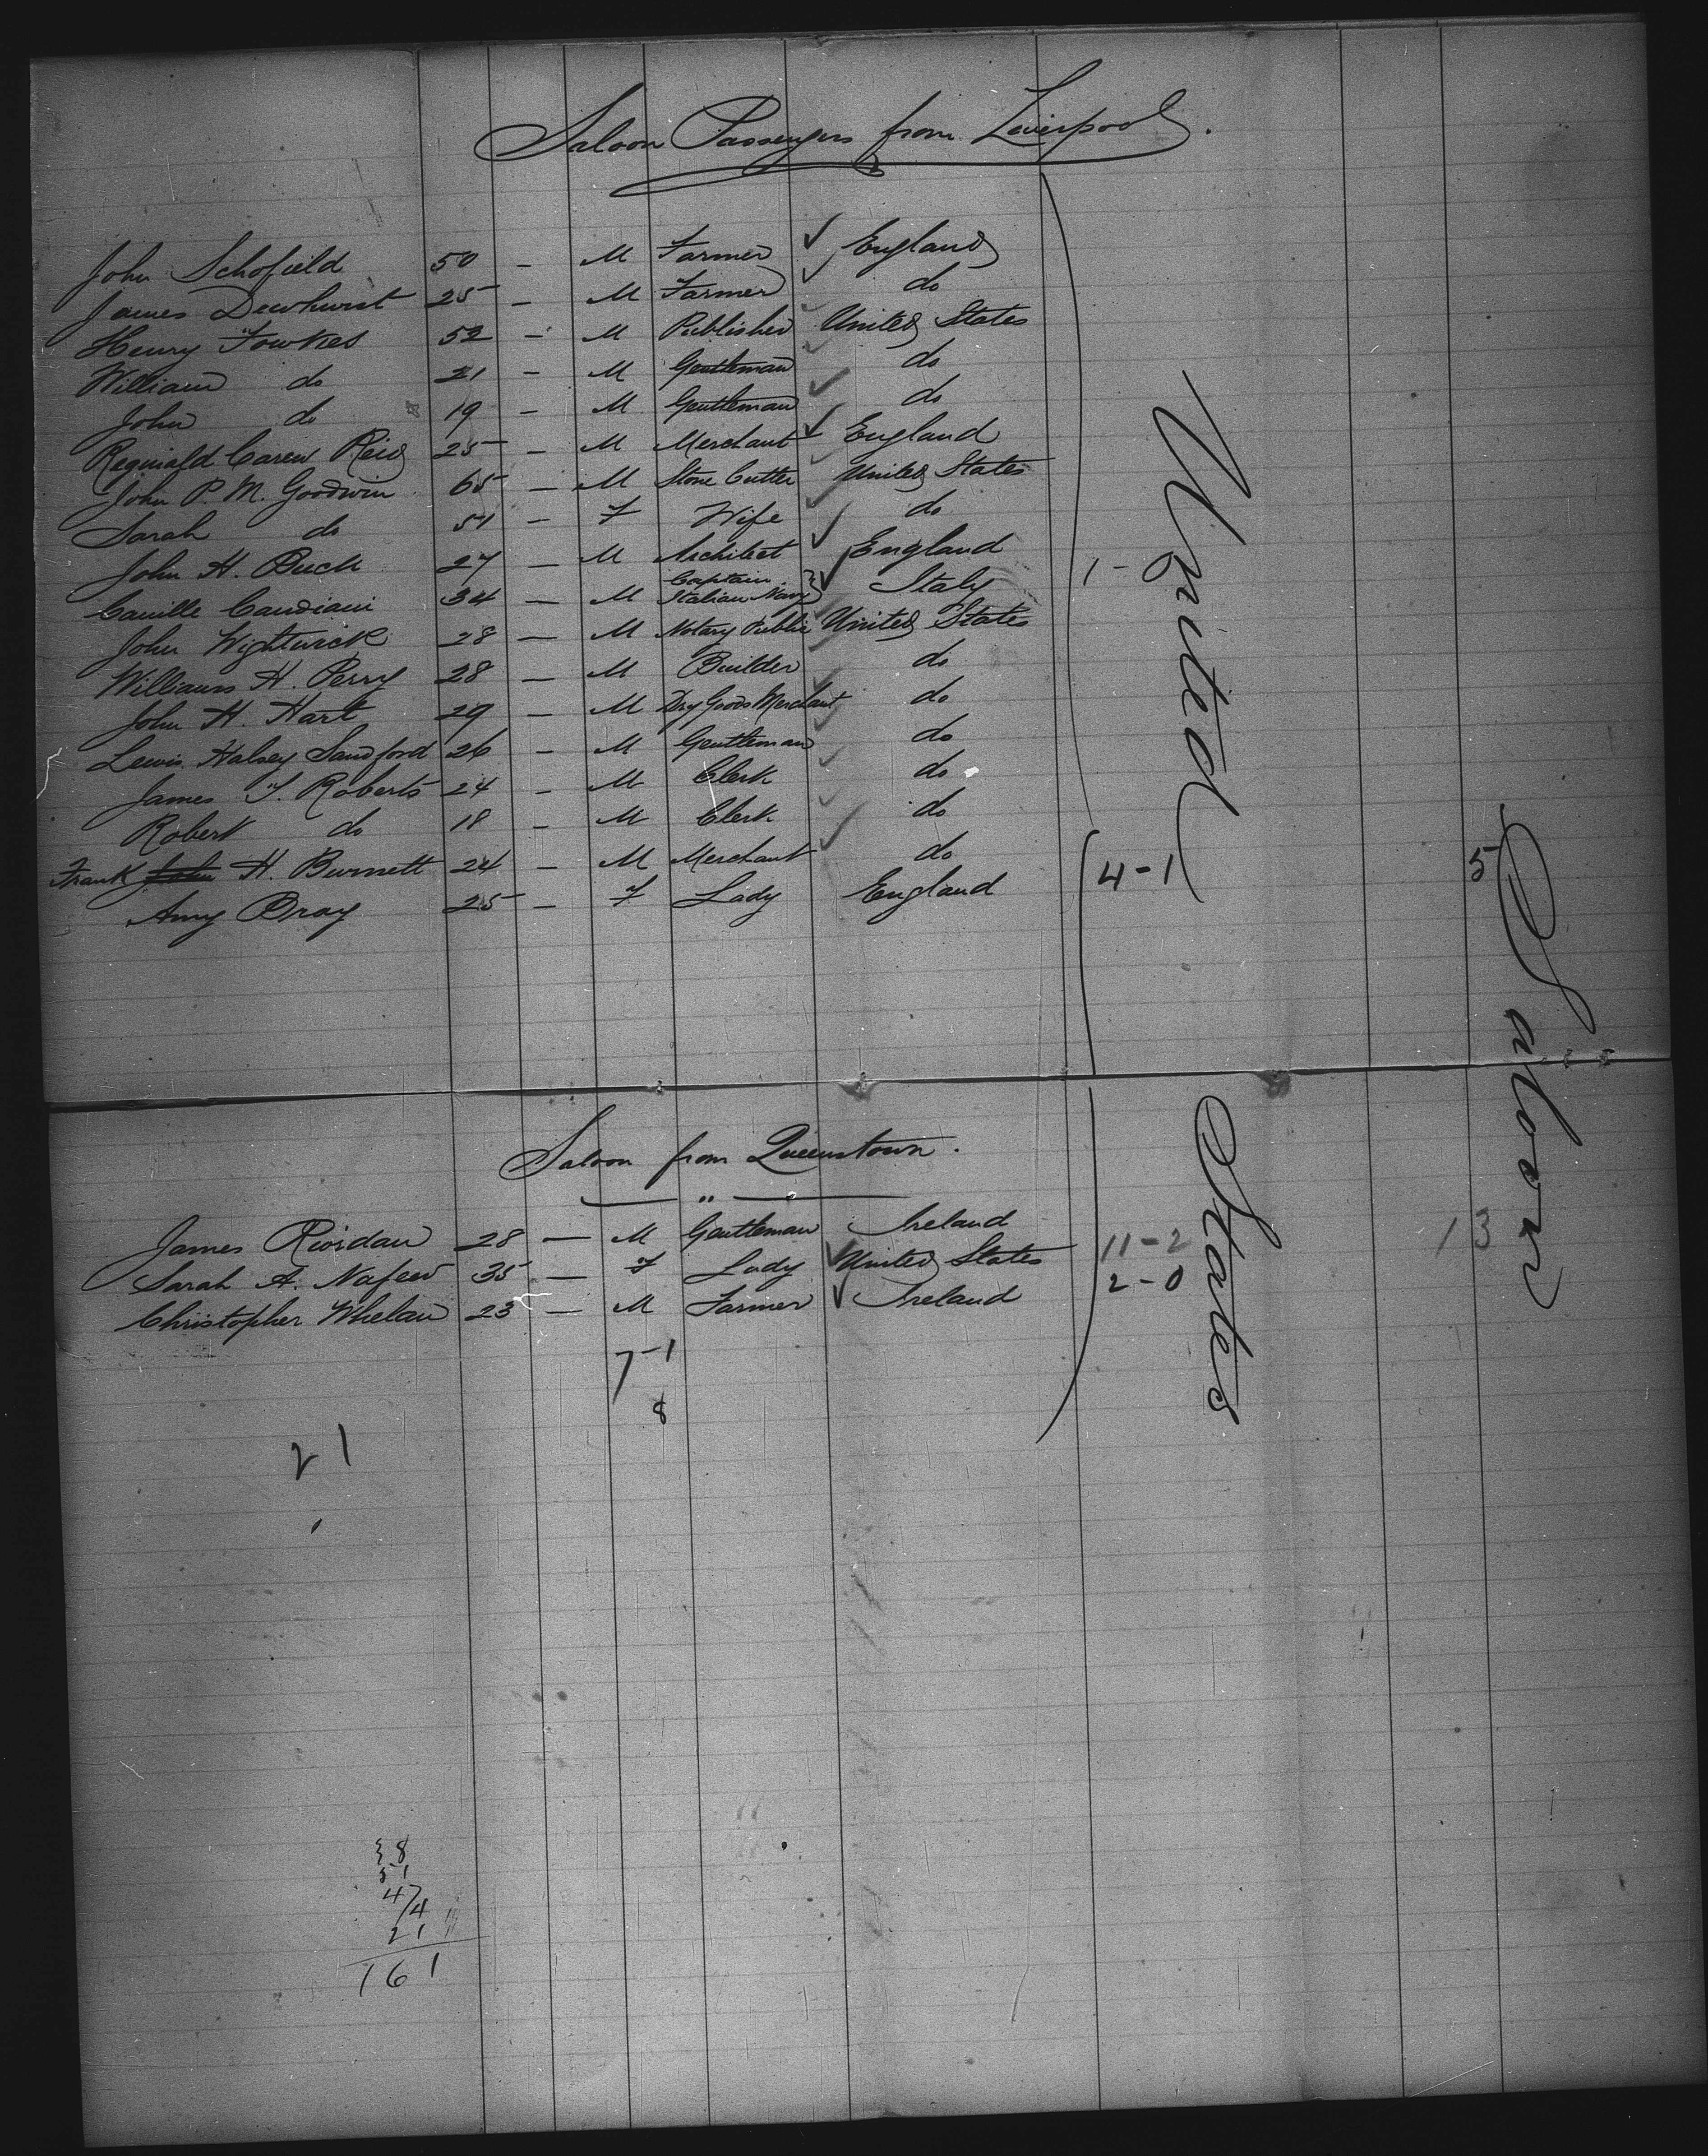 Saloon Passengers from Liverpool.
John Schofield 50 — M Farmer ✓ England
James Dewhurst 25 — M Farmer ✓ do
Henry Fowkes 52 — M Publisher United States
William do 21 — M Gentleman do
John do 19 — M Gentleman do
Reginald Carew Reid 25 — M Merchant ✓ England
John P. M. Goodwin 65 — M Stone Cutter United States
Sarah do 51 — F Wife do
John H. Buck 27 — M Architect ✓ England
Camille Candiani 34 — M Captain Italian Navy } ✓ Italy
John Wightwick 28 — M Notary Public United States
Williams H. Perry 28 — M Builder do
John H. Hart 29 — M Dry Goods Merchant do
Lewis Halsey Sandford 26 — M Gentleman do
James T. Roberts 24 — M Clerk do
Robert do 18 — M Clerk do
Frank John H. Burnett 24 — M Merchant do
Amy Bray 25 — F Lady England
Saloon from Queenstown.
— " —
James Riordan 28 — M Gentleman Ireland
Sarah A. 35 — F Lady ✓ United States
Christopher Whelan 23 — M Farmer ✓ Ireland
7-1
8
21
51
47
4
21
161
1-
4-1
11-2
2-0
United States
5
13
Saloon